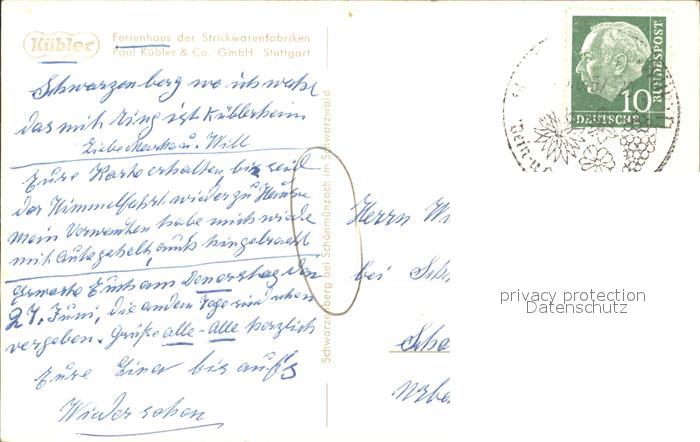 Kübler
Ferienhaus der Strickwarenfabriken
Paul Kübler & Co. GmbH. Stuttgart
Schwarzenberg wo ich wohne
das mit Ring ist Küblerheim
Liebe Martha u. Will
Eure Karte erhalten, bin seid
der Himmelfahrt wieder zu Hause
mein Verwandten habe mich wieder
mit Auto geholt, auch hingebracht
Erwarte Euch am Donerstag den
27. Juni, die andern Tage sind schon
vergeben. Grüße alle - alle herzlich
Eure Lina bis aufs
Wiedersehen
Schwarzenberg bei Schönmünzach im Schwarzwald
10
DEUTSCHE
BUNDESPOST
Wein- u.
Herrn Wi
bei Sch
Scho
privacy protection
Datenschutz